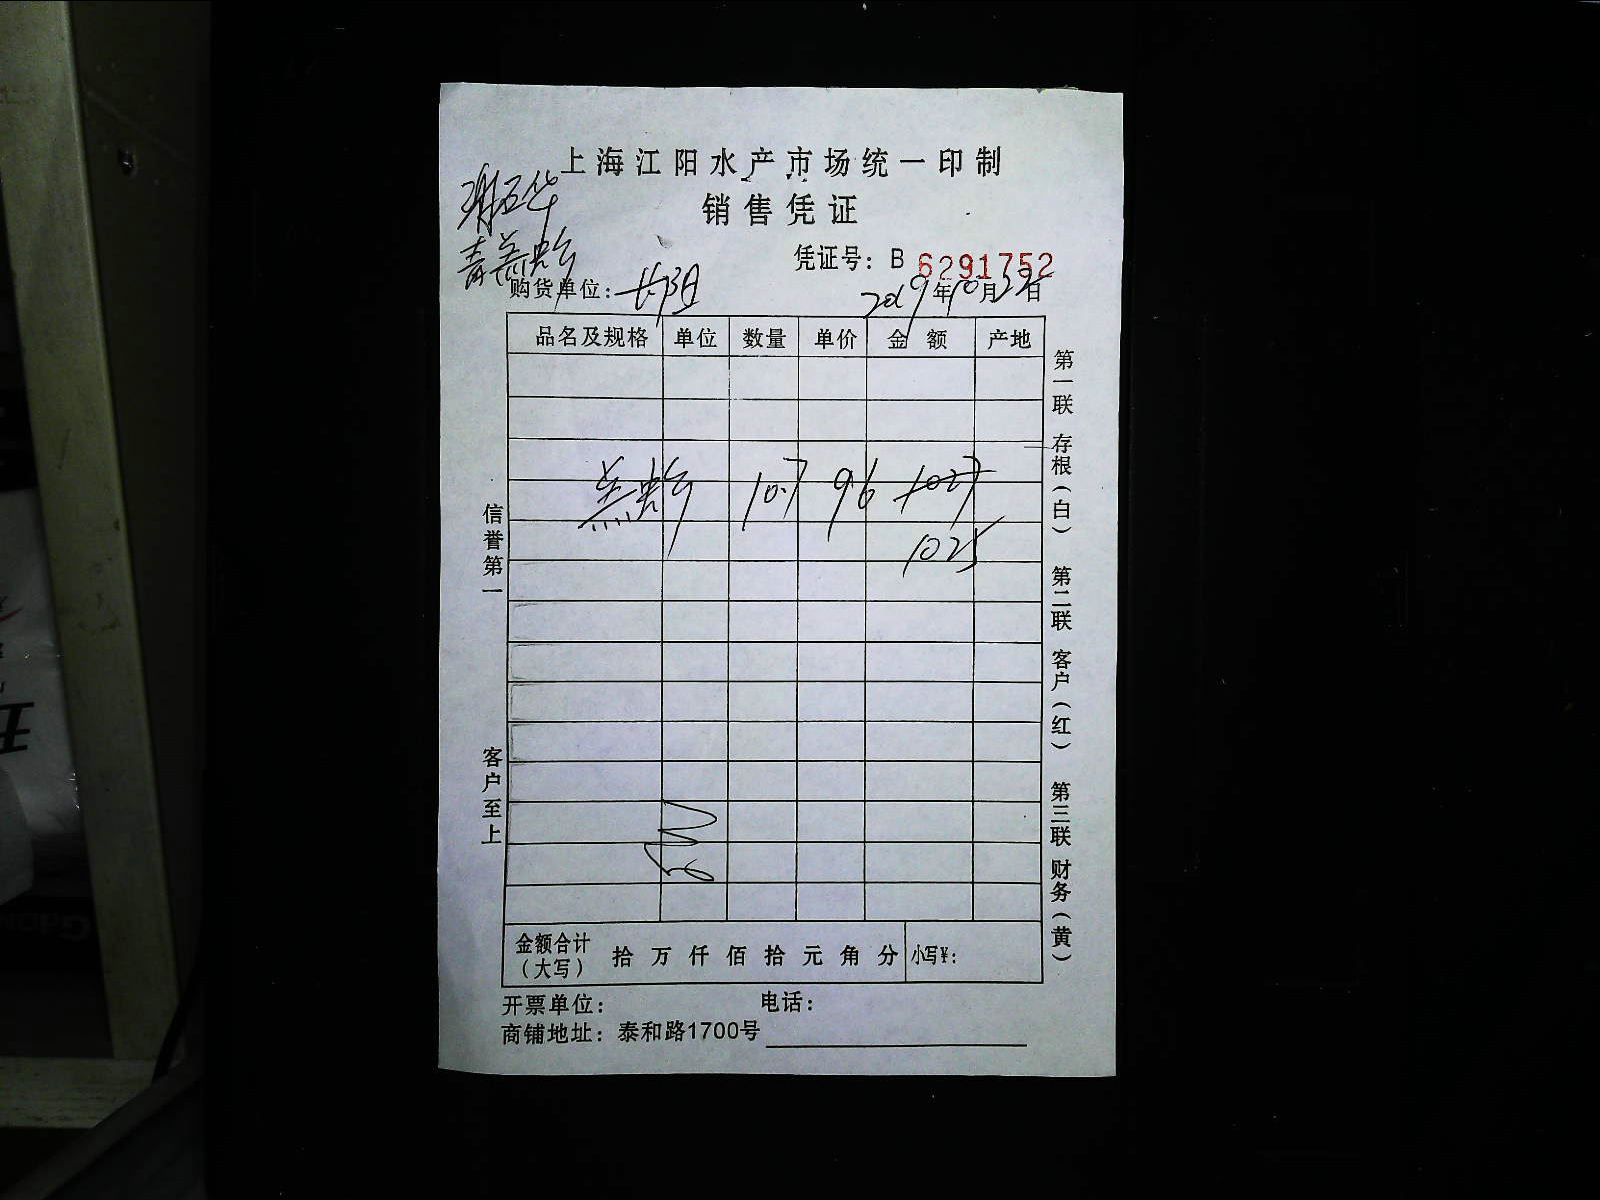 上海江阳水产市场统一印制
销售凭证
凭证号：B 6291752
购货单位：
2019年10月 日
品名及规格 单位 数量 单价 金额 产地
10.7 96 1027
1025
金额合计（大写） 拾 万 仟 佰 拾 元 角 分 小写￥：
开票单位： 电话：
商铺地址：泰和路1700号
信誉第一 客户至上
第一联 存根（白） 第二联 客户（红） 第三联 财务（黄）